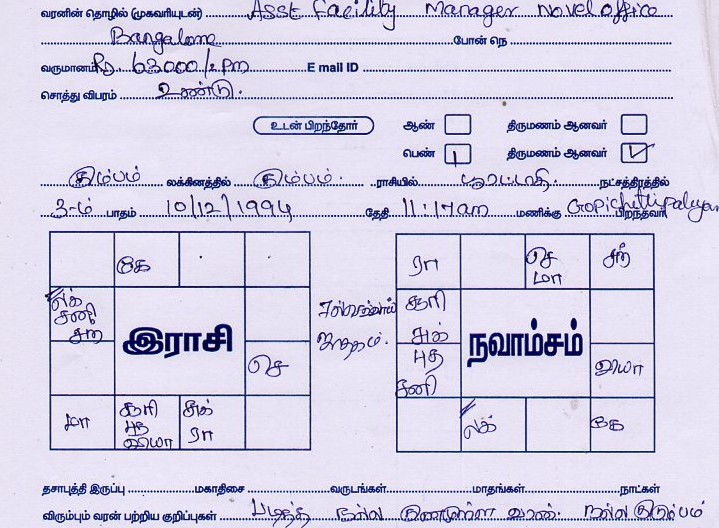 வரனின் தொழில் (முகவரியுடன்) Asst Facility Manager Novel office
Bangalore போன் நெ
வருமானம் Rs. 63000/- Pm E mail ID
சொத்து விபரம் உண்டு.
உடன் பிறந்தோர் ஆண் திருமணம் ஆனவர்
பெண் 1 திருமணம் ஆனவர் ✓
கும்பம் லக்கினத்தில் கும்பம். ராசியில் பூரட்டாதி நட்சத்திரத்தில்
3-ம் பாதம் 10/12/1994 தேதி 11:17am மணிக்கு Gopichettipalayam பிறந்தவர்
கே
லக்
சனி
சந்
இராசி
செ
மா
சூரி
புத
வியா
சுக்
ரா
செவ்வாய்
ஜாதகம்.
ரா
செ
மா
சந்
சூரி
சுக்
புத
சனி
நவாம்சம்
வியா
லக்
கே
தசாபுத்தி இருப்பு மகாதிசை வருடங்கள் மாதங்கள் நாட்கள்
விரும்பும் வரன் பற்றிய குறிப்புகள் படித்த நல்ல குணமுள்ள வரன். நல்ல குடும்பம்